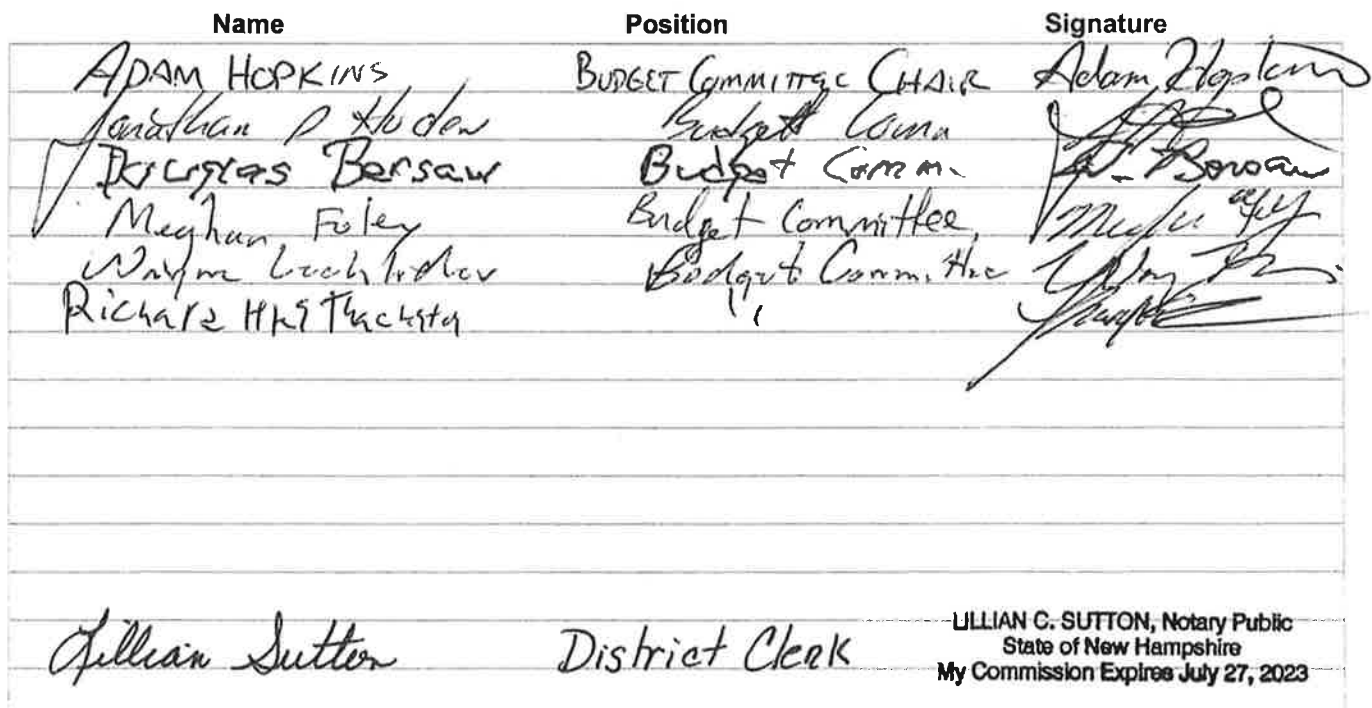 Name Position Signature
ADAM HOPKINS BUDGET COMMITTEE CHAIR Adam Hopkins
Jonathan P Hoden Budget Comm
Douglas Bersaw Budget Comm. Bersaw
Meghan Foley Budget Committee
Wayne Budget Committee
Richard Thackston "
Lillian Sutton District Clerk LILLIAN C. SUTTON, Notary Public
State of New Hampshire
My Commission Expires July 27, 2023